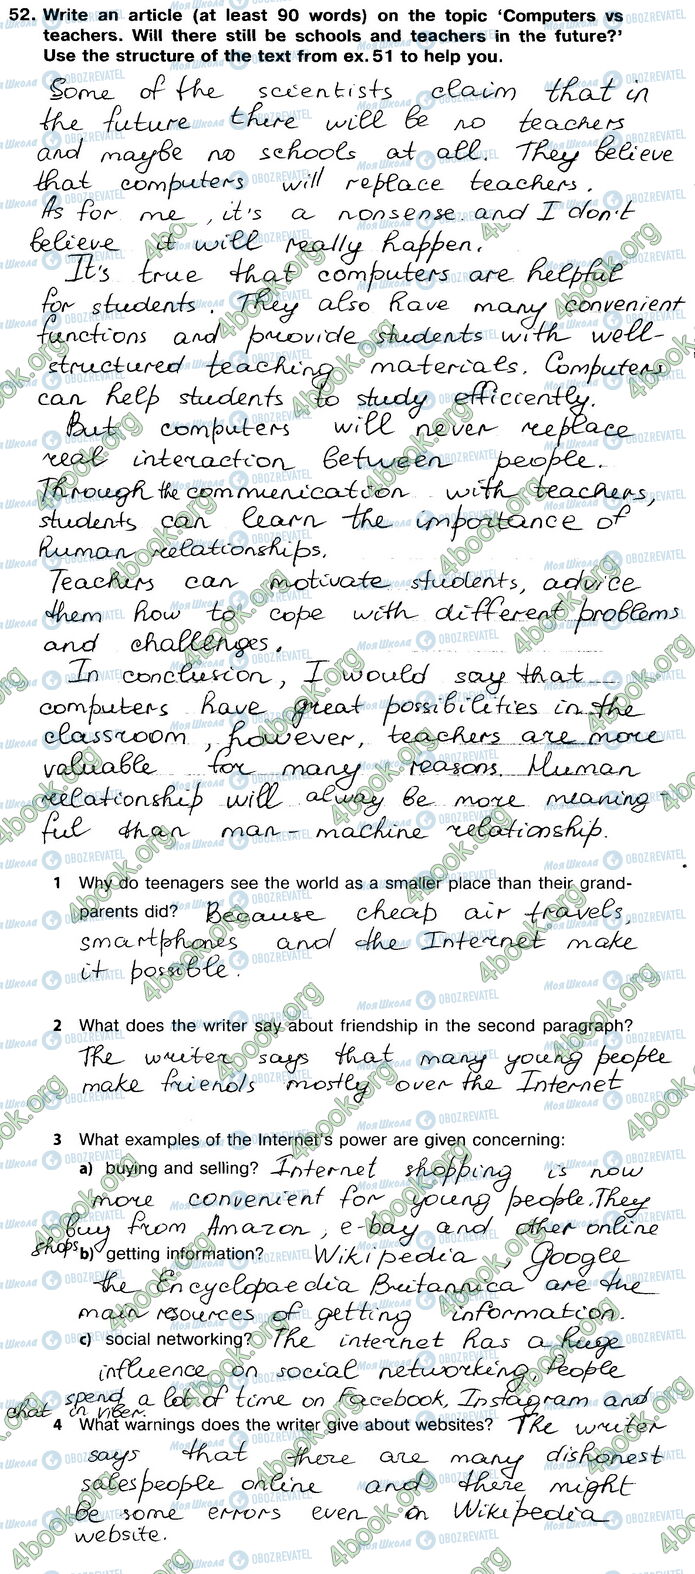 52. Write an article (at least 90 words) on the topic 'Computers vs
teachers. Will there still be schools and teachers in the future?'
Use the structure of the text from ex. 51 to help you.
Some of the scientists claim that in
the future there will be no teachers
and maybe no schools at all. They believe
that computers will replace teachers.
As for me, it's a nonsense and I don't
believe it will really happen.
It's true that computers are helpful
for students. They also have many convenient
functions and provide students with well-
structured teaching materials. Computers
can help students to study efficiently.
But computers will never replace
real interaction between people.
Through the communication with teachers,
students can learn the importance of
human relationships.
Teachers can motivate students, advice
them how to cope with different problems
and challenges.
In conclusion, I would say that
computers have great possibilities in the
classroom, however, teachers are more
valuable for many reasons. Human
relationship will alway be more meaning-
ful than man-machine relationship.
1 Why do teenagers see the world as a smaller place than their grand-
parents did? Because cheap air travels,
smartphones and the Internet make
it possible.
2 What does the writer say about friendship in the second paragraph?
The writer says that many young people
make friends mostly over the Internet
3 What examples of the Internet's power are given concerning:
a) buying and selling? Internet shopping is now
more convenient for young people. They
buy from Amazon, e-bay and other online
shops
b) getting information? Wikipedia, Google
the Encyclopaedia Britannica are the
main resources of getting information.
c) social networking? The internet has a huge
influence on social networking. People
spend a lot of time on Facebook, Instagram and
chat in viber.
4 What warnings does the writer give about websites? The writer
says that there are many dishonest
salespeople online and there might
be some errors even on Wikipedia
website.